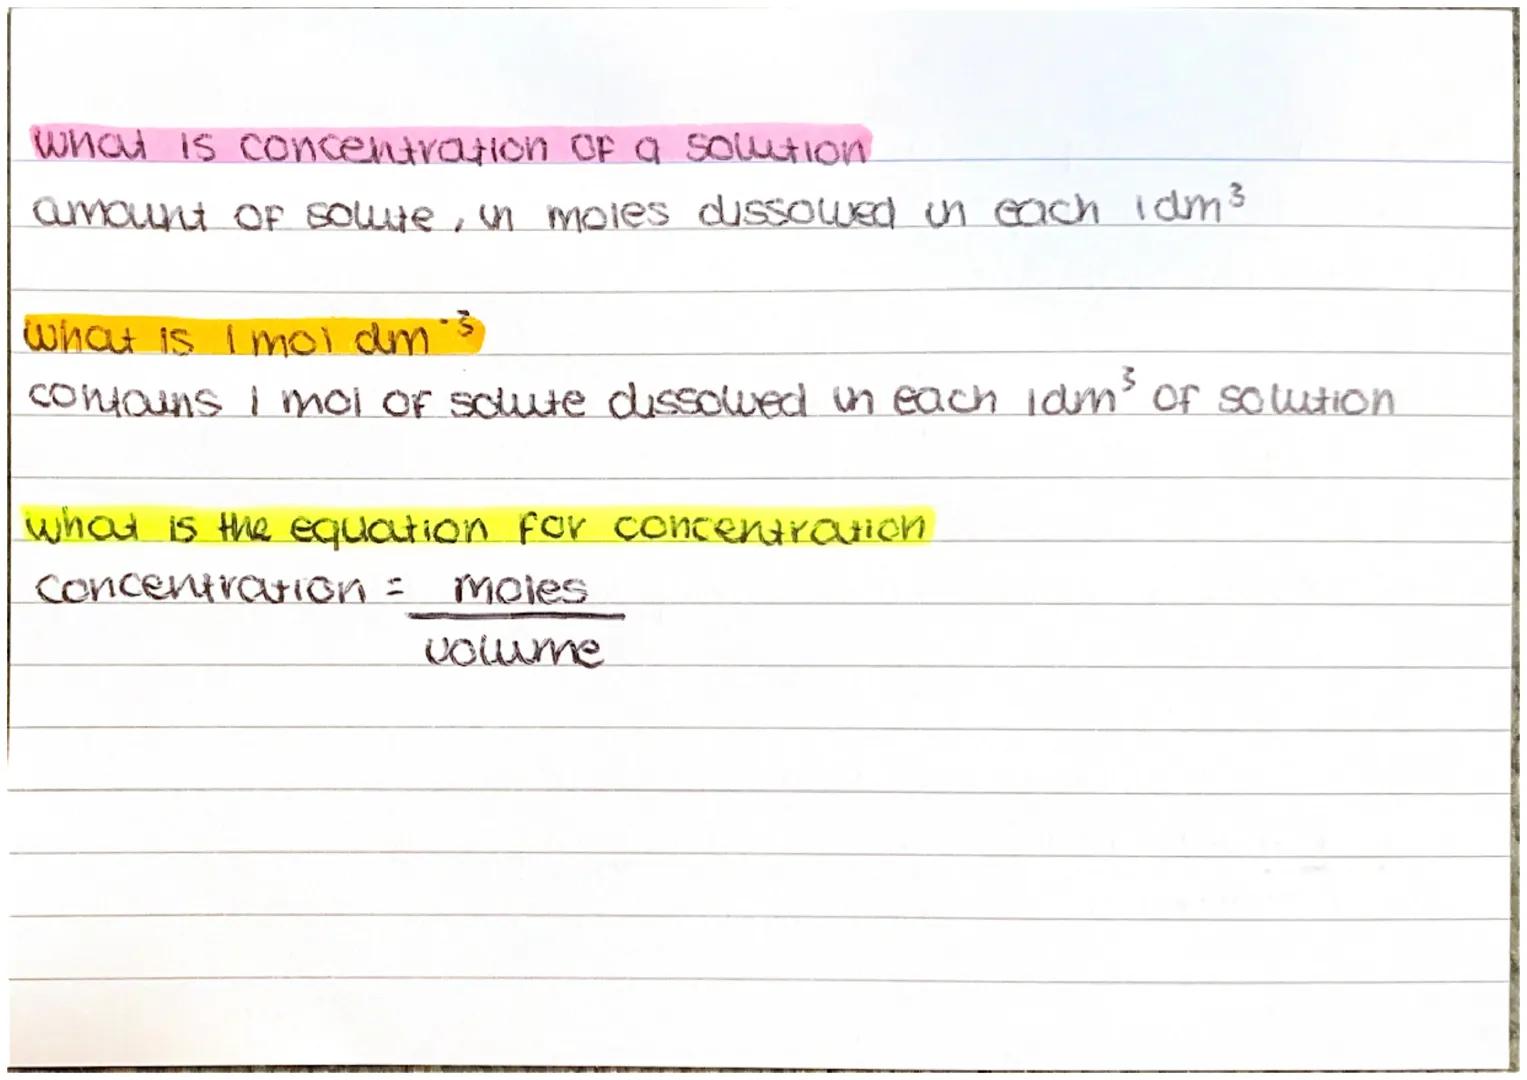 what is concentration of a solution
amount of solute, in moles dissolved in each 1dm³
what is 1 mol dm⁻³
contains 1 mol of solute dissolved in each 1dm³ of solution
what is the equation for concentration
concentration = moles
volume